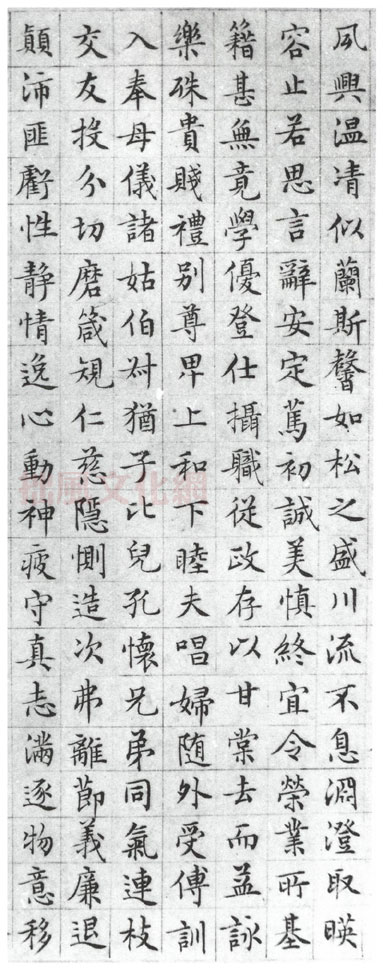 夙興温清似蘭斯馨如松之盛川流不息淵澄取暎
容止若思言辭安定篤初誠美慎終宜令榮業所基
籍甚無竟學優登仕攝職從政存以甘棠去而益詠
樂殊貴賤禮別尊卑上和下睦夫唱婦随外受傅訓
入奉母儀諸姑伯叔猶子比兒孔懷兄弟同氣連枝
交友投分切磨箴規仁慈隱惻造次弗離節義廉退
顛沛匪虧性静情逸心動神疲守真志滿逐物意移
風文化網